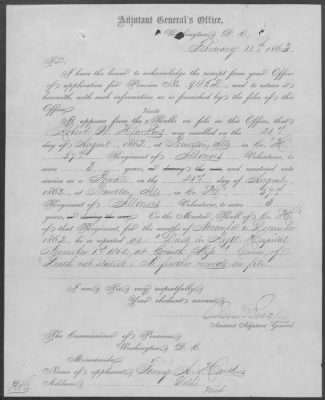 Adjutant General's Office,
Washington, D. C.
February 11th, 1863
Sir:
I have the honor to acknowledge the receipt from your Office
of application for Pension No. and to return it
herewith, with such information as is furnished by the files of this
Office.
It appears from the Rolls on file in this Office, that
Robert Hawkins was enrolled on the 21st
day of August, 1862, at in Co. H,
57th Regiment of Illinois Volunteers, to
serve 3 years, and mustered into
service as a on the 21st day of August
1862, at in Co. H, 57th
Regiment of Illinois Volunteers, to serve 3
years, On the Muster Roll of Co. H,
of that Regiment, for the months of November & December
1862, he is reported "Died in Hospital
1st 1862, at Corinth Miss." Cause of
death not stated. No further records on file.
I am, Sir, very respectfully,
Your obedient servant,
Assistant Adjutant General.
The Commissioner of Pensions,
Washington, D. C.
Memoranda:
Name of applicant, Hawkins
Address,